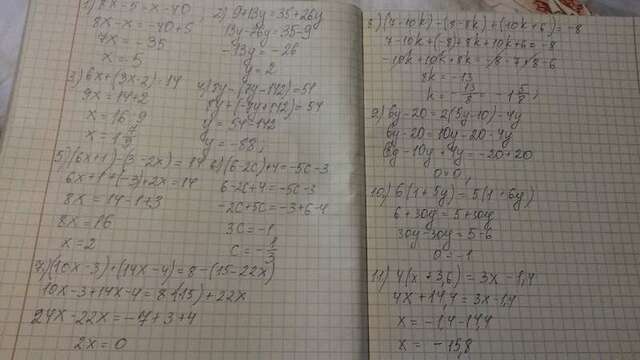 1) 8x - 5 = x - 40
8x - x = -40 + 5
7x = -35
x = 5
2) 9 + 13y = 35 + 26y
13y - 26y = 35 - 9
-13y = -26
y = 2
3) 6x + (3x - 2) = 14
9x = 14 + 2
x = 16 : 9
x = 1 7/9
4) 8y - (7y - 142) = 54
8y + (-7y + 142) = 54
y = 54 - 142
y = -88;
5) (6x + 1) - (3 - 2x) = 14
6x + 1 + (-3) + 2x = 14
8x = 14 - 1 + 3
8x = 16
x = 2
6) (6 - 2c) + 4 = -5c - 3
6 - 2c + 4 = -5c - 3
-2c + 5c = -3 + 6 - 4
3c = -1
c = -1/3
7) (10x - 3) + (14x - 4) = 8 - (15 - 22x)
10x - 3 + 14x - 4 = 8 (-15) + 22x
24x - 22x = -7 + 3 + 4
2x = 0
8) (7 - 10k) - (8 - 8k) + (10k + 6) = -8
7 - 10k + (-8) + 8k + 10k + 6 = -8
-10k + 10k + 8k = -8 - 7 + 8 - 6
8k = -13
k = -13/8 = -1 5/8;
9) 6y - 20 = 2(5y - 10) - 4y
6y - 20 = 10y - 20 - 4y
6y - 10y + 4y = -20 + 20
0 = 0;
10) 6(1 + 5y) = 5(1 + 6y)
6 + 30y = 5 + 30y
30y - 30y = 5 - 6
0 = -1
11) 4(x + 3,6) = 3x - 1,4
4x + 14,4 = 3x - 1,4
x = -1,4 - 14,4
x = -15,8